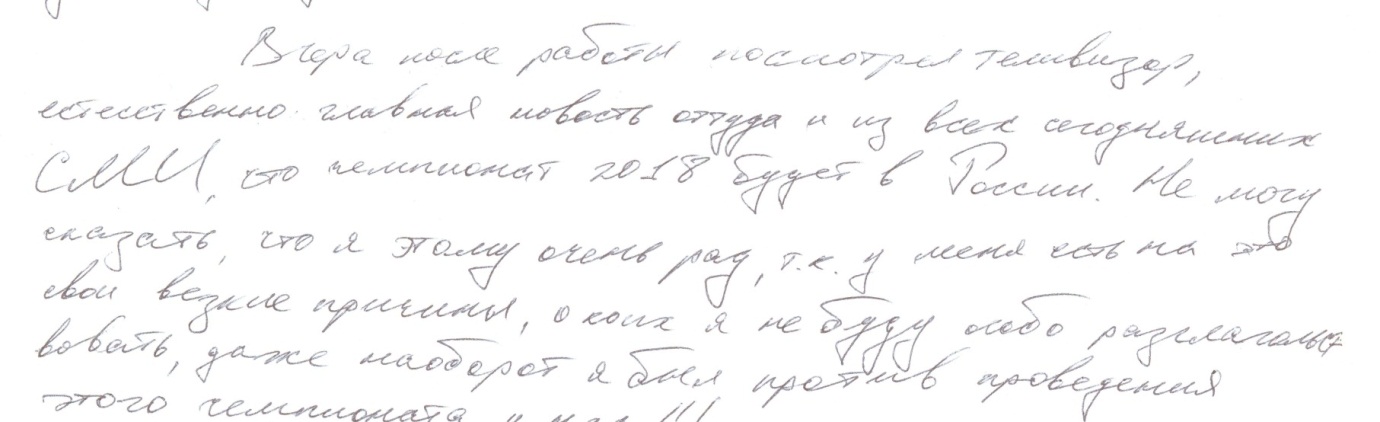 Вчера после работы посмотрел телевизор,
естественно главная новость оттуда и из всех сегодняшних
СМИ, что чемпионат 2018 будет в России. Не могу
сказать, что я этому очень рад, т.к. у меня есть на это
свои везкие причины, о коих я не буду особо разглагольст
вовать, даже наоборот я был против проведения
этого чемпионата и